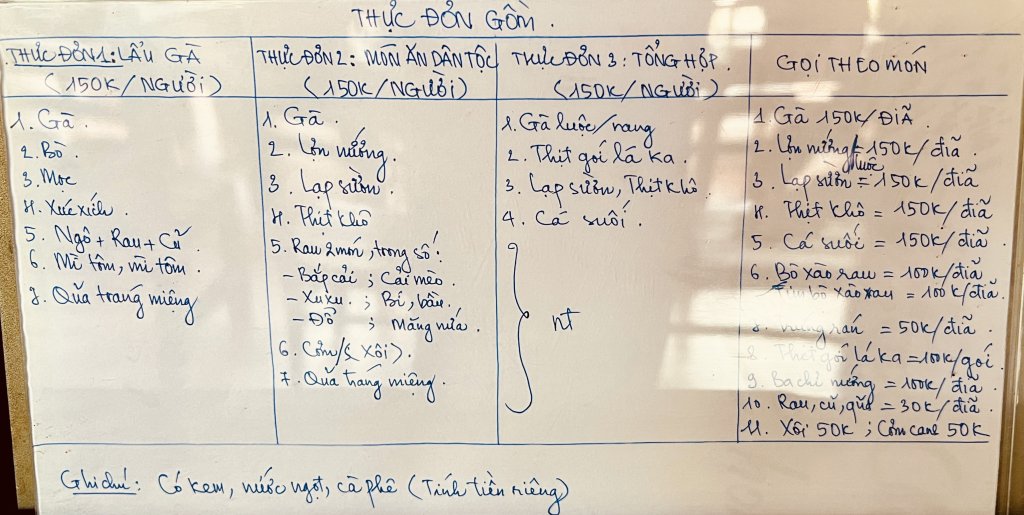 THỰC ĐƠN GỒM.
THỰC ĐƠN 1: LẨU GÀ
(150K/NGƯỜI)
1. Gà.
2. Bò.
3. Mọc
4. Xúc xích.
5. Ngô + Rau + Củ
6. Mì tôm, mì tôm.
7. Quả tráng miệng
THỰC ĐƠN 2: MÓN ĂN DÂN TỘC
(150K/NGƯỜI)
1. Gà.
2. Lợn nướng.
3. Lạp sườn.
4. Thịt khô
5. Rau 2 món, trong số:
- Bắp cải; Cải mèo.
- Xu xu; Bí, bầu.
- Đỗ; Măng nứa.
6. Cơm/( Xôi).
7. Quả tráng miệng.
THỰC ĐƠN 3: TỔNG HỢP.
(150K/NGƯỜI)
1. Gà luộc/rang
2. Thịt gói lá ka.
3. Lạp sườn, Thịt khô.
4. Cá suối.
nt
GỌI THEO MÓN
1. Gà 150K/ĐĨA
2. Lợn nướng/luộc = 150K/đĩa
3. Lạp sườn = 150K/đĩa
4. Thịt khô = 150K/đĩa
5. Cá suối = 150K/đĩa
6. Bò xào rau = 100K/đĩa
bò xào rau = 100K/đĩa.
rán = 50K/đĩa.
8. Thịt gói lá ka = 100K/gói
9. Ba chỉ nướng = 100K/đĩa
10. Rau, củ, quả = 30K/đĩa.
11. Xôi 50K; Cơm canh 50K
Ghi chú: Có kem, nước ngọt, cà phê (Tính tiền riêng)